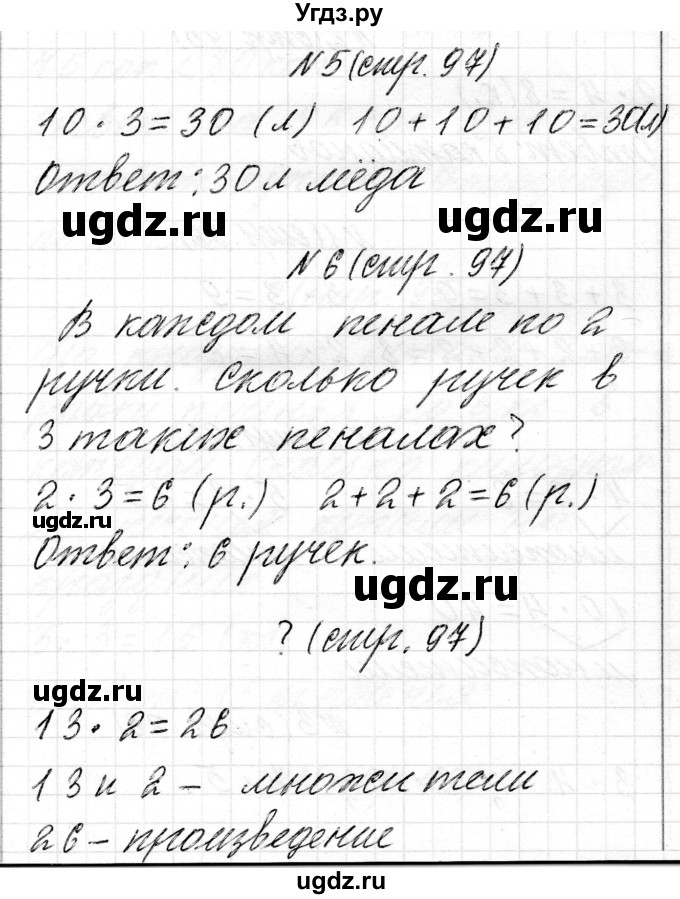 Угдз.ру
№5 (стр. 97)
10 · 3 = 30 (л) 10 + 10 + 10 = 30(л)
Ответ: 30 л мёда
ugdz.ru ugdz.ru
№6 (стр. 97)
В каждом пенале по 2
ручки. Сколько ручек в
3 таких пеналах?
2 · 3 = 6 (р.) 2 + 2 + 2 = 6 (р.)
ugdz.ru
Ответ: 6 ручек.
ugdz.ru
? (стр. 97)
ugdz.ru
13 · 2 = 26
13 и 2 – множители
26 – произведение
ugdz.ru
ugdz.ru